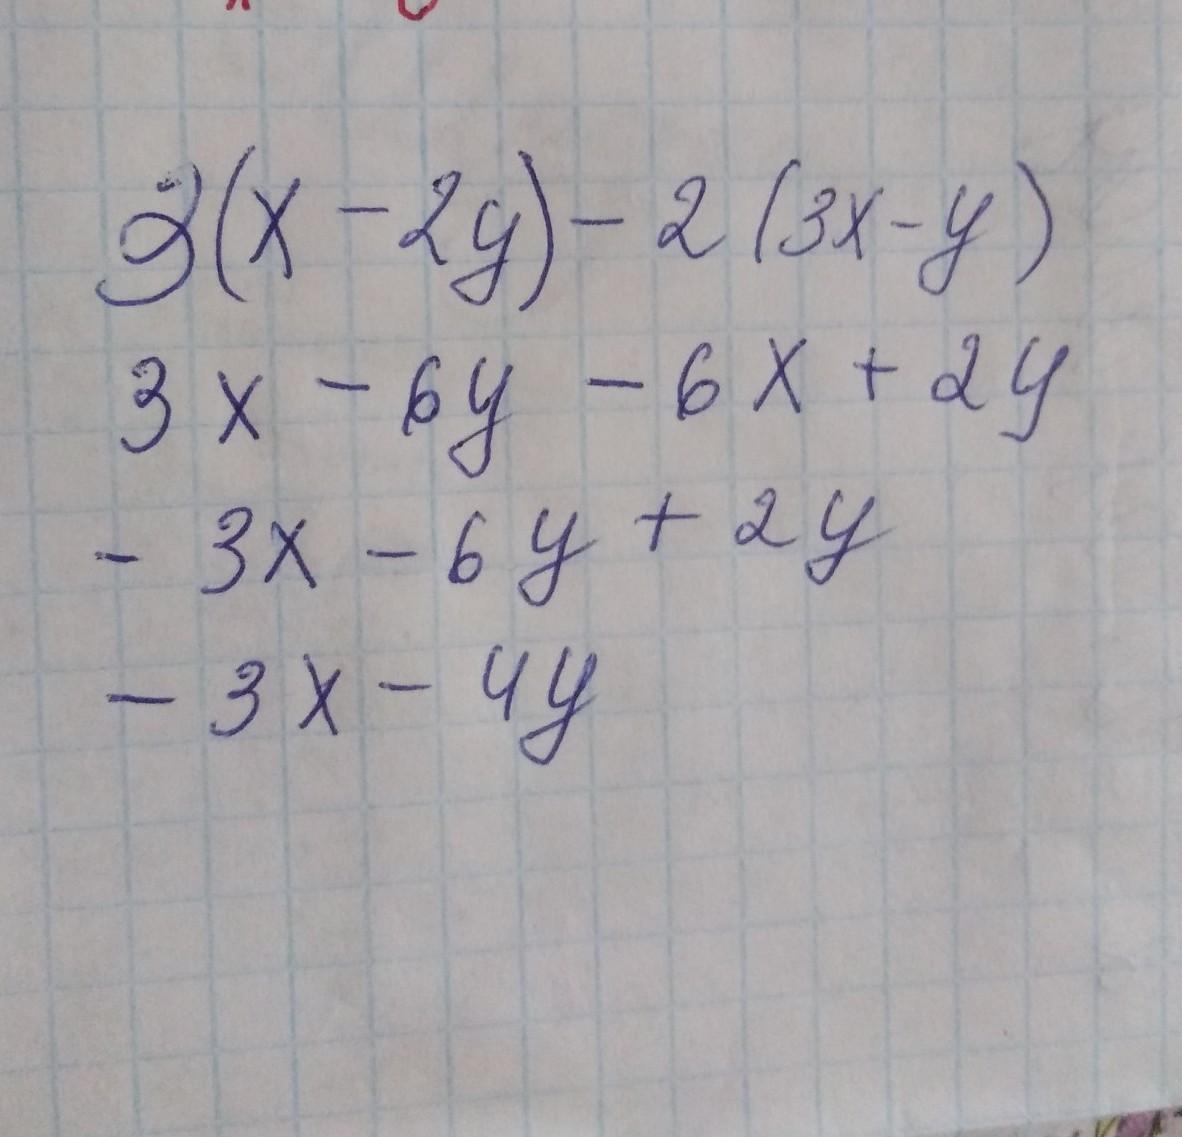 3(x - 2y) - 2(3x - y)
3x - 6y - 6x + 2y
- 3x - 6y + 2y
- 3x - 4y